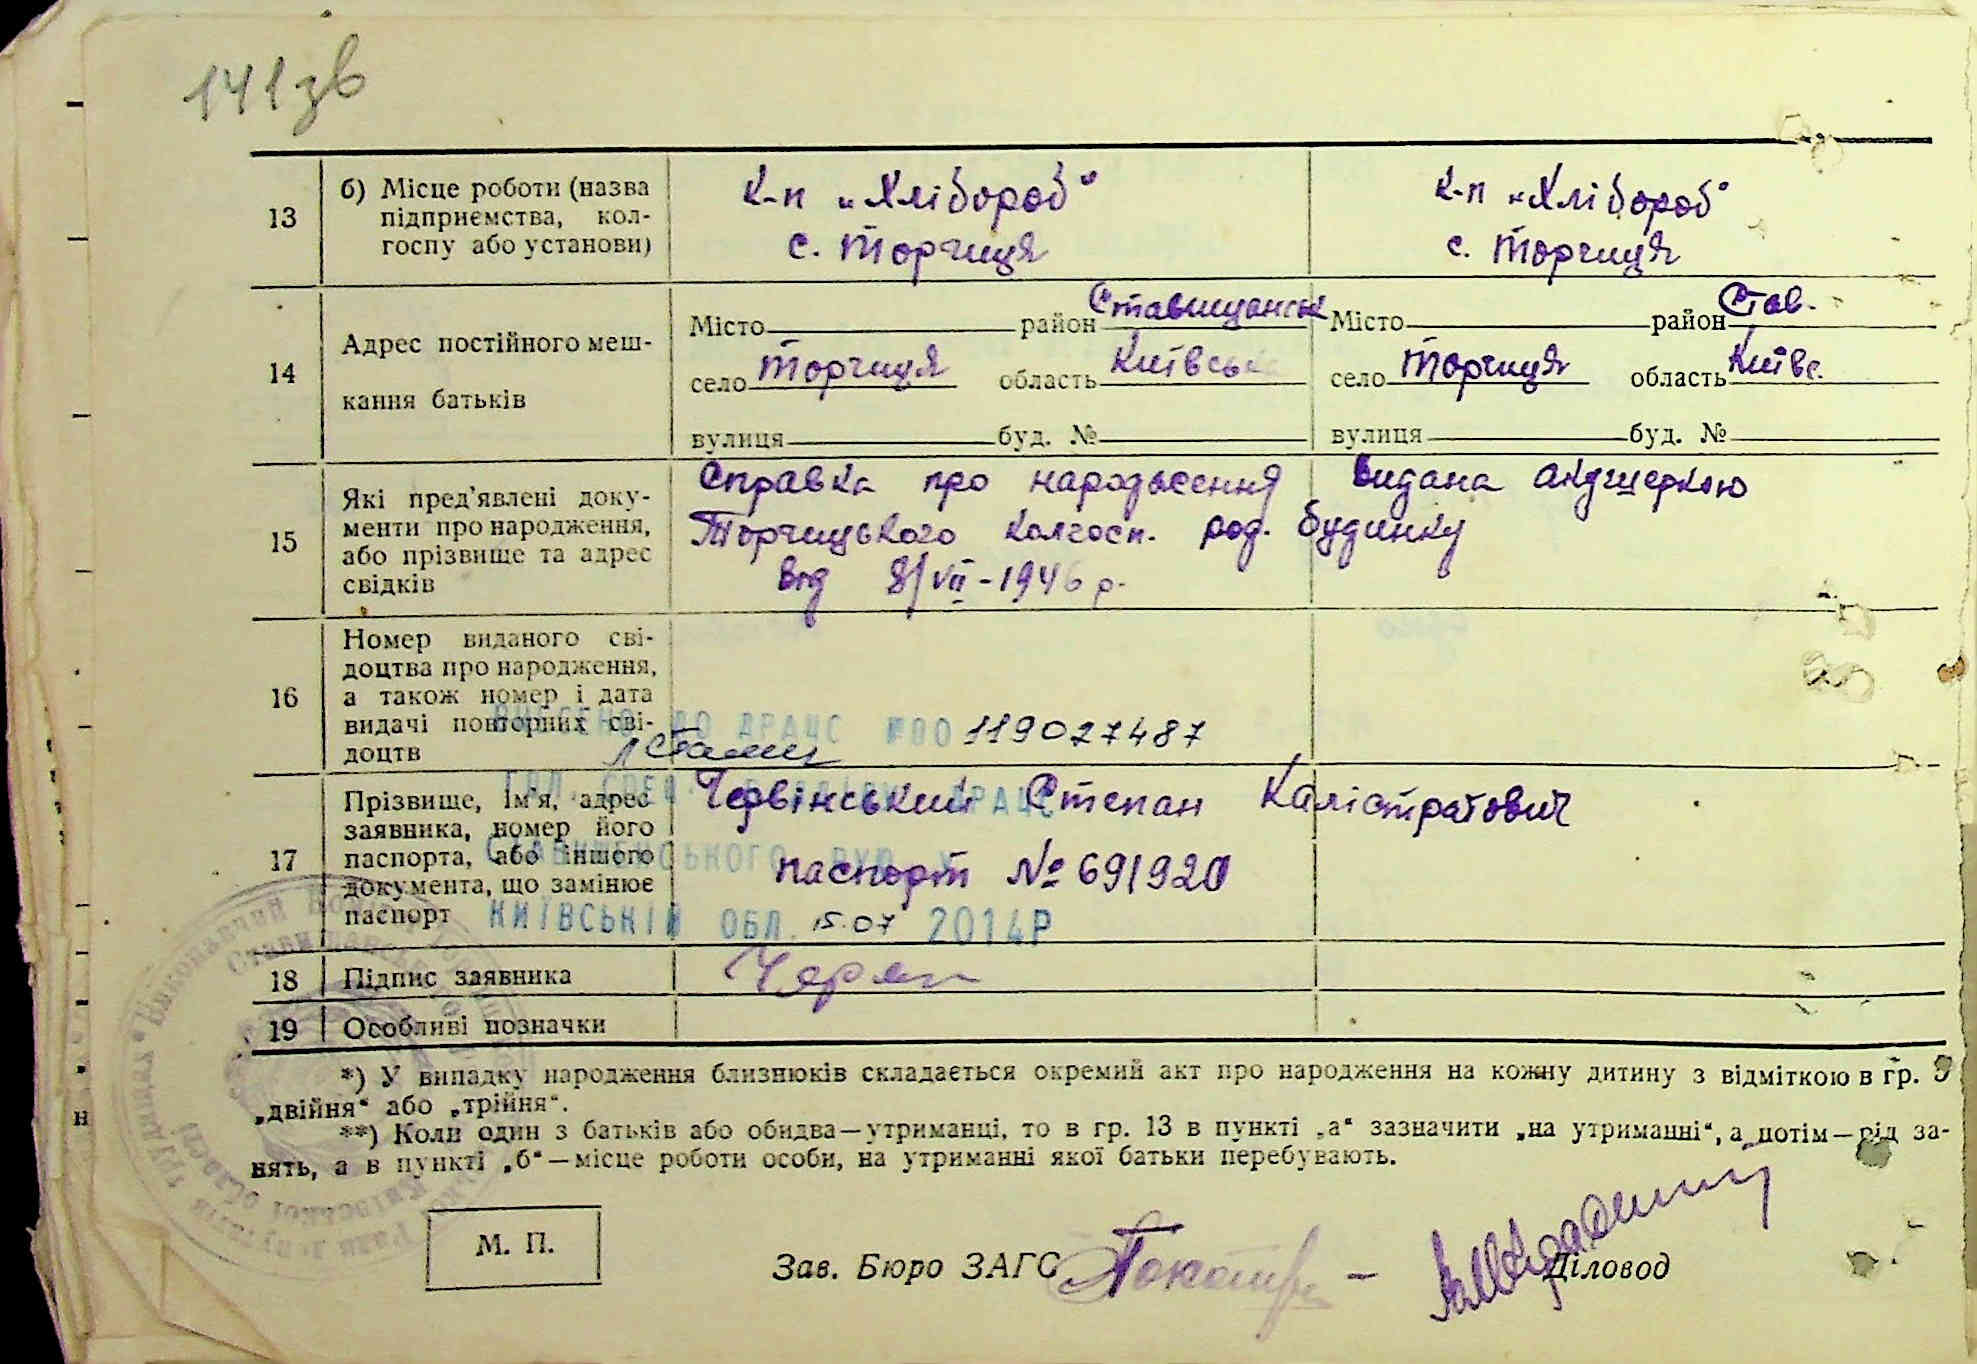 141зв
13 б) Місце роботи (назва підприємства, кол-
госпу або установи)
к-п „Хлібороб“
с. Торчиця
к-п „Хлібороб“
с. Торчиця
14 Адрес постійного меш-
кання батьків
Місто район Ставищанськ Місто район Став.
село Торчиця область Київська село Торчиця область Київс.
вулиця буд. № вулиця буд. №
15 Які пред'явлені доку-
менти про народження,
або прізвище та адрес
свідків
Справка про народження видана акушеркою
Торчицького колгосп. род. будинку
від 8/VII-1946 р.
16 Номер виданого сві-
доцтва про народження,
а також номер і дата
видачі повторних сві-
доцтв
ВНЕСЕНО ДО ДРАЦС №00119027487
17 Прізвище, ім'я, адрес
заявника, номер його
паспорта, або іншого
документа, що замінює
паспорт
Червінський Степан Калістратович
паспорт № 691920
КИЇВСЬКІЙ ОБЛ. 15.07 2014Р
18 Підпис заявника
19 Особливі позначки
*) У випадку народження близнюків складається окремий акт про народження на кожну дитину з відміткою в гр. 9
„двійня“ або „трійня“.
**) Коли один з батьків або обидва—утриманці, то в гр. 13 в пункті „а“ зазначити „на утриманні“, а потім—рід за-
нять, а в пункті „б“—місце роботи особи, на утриманні якої батьки перебувають.
М. П.
Зав. Бюро ЗАГС Діловод